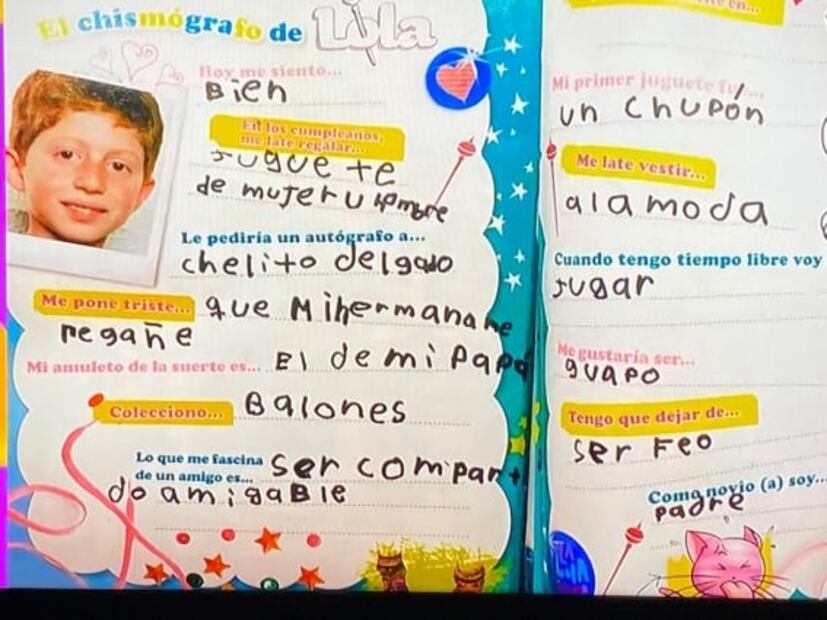 El chismógrafo de Lola
Hoy me siento...
Bien
En los cumpleaños,
me late regalar...
Juguete
de mujer u hombre
Le pediría un autógrafo a...
chelito Delgado
Me pone triste... que Mihermana me
regañe
Mi amuleto de la suerte es... El de mi Papá
Colecciono... Balones
Lo que me fascina
de un amigo es... ser compart
do amigable
en...
Mi primer juguete fu/...
un chupón
Me late vestir...
a la moda
Cuando tengo tiempo libre voy
Jugar
Me gustaría ser...
guapo
Tengo que dejar de...
ser Feo
Como novio (a) soy...
padre